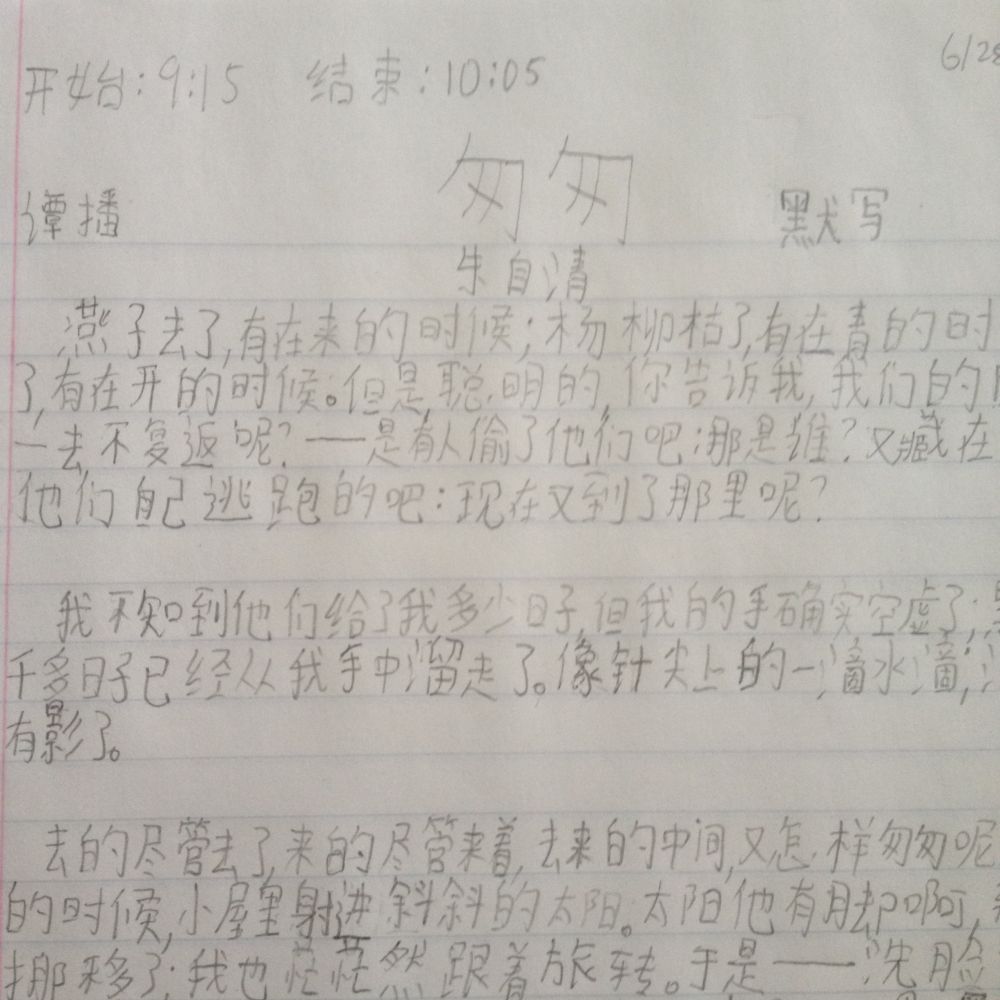 开始:9:15 结束:10:05 6/28
匆匆
谭播 默写
朱自清
燕子去了,有在来的时候;杨柳枯了,有在青的时
了,有在开的时候。但是,聪明的,你告诉我,我们的
一去不复返呢?——是有人偷了他们吧:那是谁?又藏在
他们自己逃跑的吧:现在又到了那里呢?
我不知到他们给了我多少日子,但我的手确实空虚了;
千多日子已经从我手中溜走了。像针尖上的一滴水滴,
有影了。
去的尽管去了,来的尽管来着,去来的中间,又怎样匆匆呢
的时候,小屋里射进斜斜的太阳。太阳他有脚啊,
挪移了;我也茫茫然跟着旅转。于是——洗脸